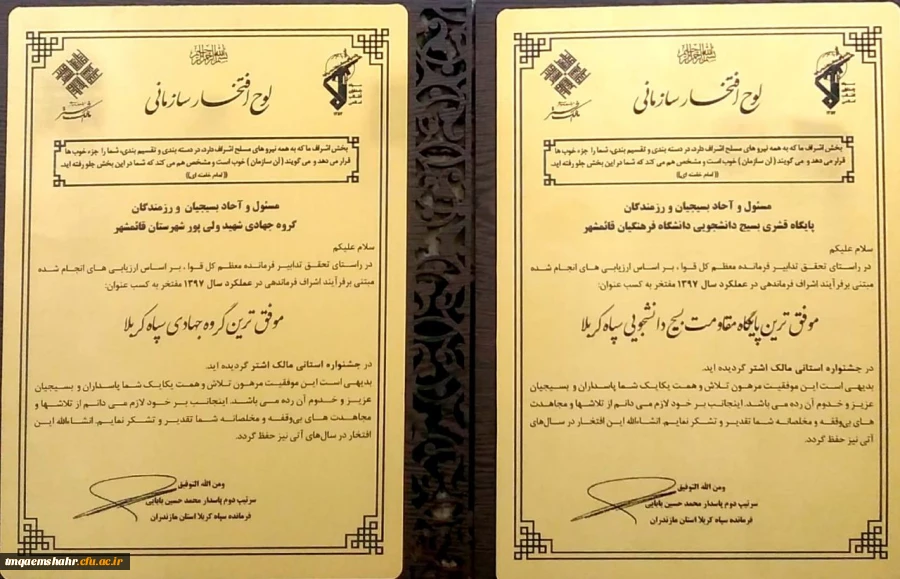 بسم الله الرحمن الرحیم
لوح افتخار سازمانی
مالک اشتر
بخش اشراف ما که به همه نیرو های مسلح اشراف دارد، در دسته بندی و تقسیم بندی، شما را جزء خوب ها
قرار می دهد و می گویند ( آن سازمان ) خوب است و مشخص هم می کند که شما در این بخش جلو رفته اید.
((امام خامنه ای))
مسئول و آحاد بسیجیان و رزمندگان
پایگاه قشری بسیج دانشجویی دانشگاه فرهنگیان قائمشهر
سلام علیکم
در راستای تحقق تدابیر فرمانده معظم کل قوا ، بر اساس ارزیابی های انجام شده
مبتنی برفرآیند اشراف فرماندهی در عملکرد سال ۱۳۹۷ مفتخر به کسب عنوان:
موفق ترین پایگاه مقاومت بسیج دانشجویی سپاه کربلا
در جشنواره استانی مالک اشتر گردیده اید.
بدیهی است این موفقیت مرهون تلاش و همت یکایک شما پاسداران و بسیجیان
عزیز و خدوم آن رده می باشد. اینجانب بر خود لازم می دانم از تلاشها و مجاهدت
های بی‌وقفه و مخلصانه شما تقدیر و تشکر نمایم. انشاءالله این افتخار در سال‌های
آتی نیز حفظ گردد.
ومن الله التوفیق
سرتیپ دوم پاسدار محمد حسین بابایی
فرمانده سپاه کربلا استان مازندران
بسم الله الرحمن الرحیم
لوح افتخار سازمانی
مالک اشتر
بخش اشراف ما که به همه نیرو های مسلح اشراف دارد، در دسته بندی و تقسیم بندی، شما را جزء خوب ها
قرار می دهد و می گویند ( آن سازمان ) خوب است و مشخص هم می کند که شما در این بخش جلو رفته اید.
((امام خامنه ای))
مسئول و آحاد بسیجیان و رزمندگان
گروه جهادی شهید ولی پور شهرستان قائمشهر
سلام علیکم
در راستای تحقق تدابیر فرمانده معظم کل قوا ، بر اساس ارزیابی های انجام شده
مبتنی برفرآیند اشراف فرماندهی در عملکرد سال ۱۳۹۷ مفتخر به کسب عنوان:
موفق ترین گروه جهادی سپاه کربلا
در جشنواره استانی مالک اشتر گردیده اید.
بدیهی است این موفقیت مرهون تلاش و همت یکایک شما پاسداران و بسیجیان
عزیز و خدوم آن رده می باشد. اینجانب بر خود لازم می دانم از تلاشها و
مجاهدت های بی‌وقفه و مخلصانه شما تقدیر و تشکر نمایم. انشاءالله این
افتخار در سال‌های آتی نیز حفظ گردد.
ومن الله التوفیق
سرتیپ دوم پاسدار محمد حسین بابایی
فرمانده سپاه کربلا استان مازندران
tmqaemshahr.cfu.ac.ir